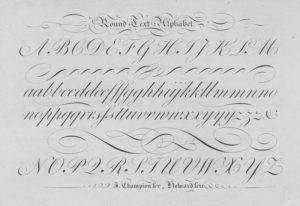 Round Text Alphabet.
A B C D E F G H I J K L M
aabbccddeefffgghhiijkkllmmnno
noppqqrrsfsttuvvwwxxyyyzz&
N O P Q R S T U V W X Y Z
J. Champion scr. Howard sc.